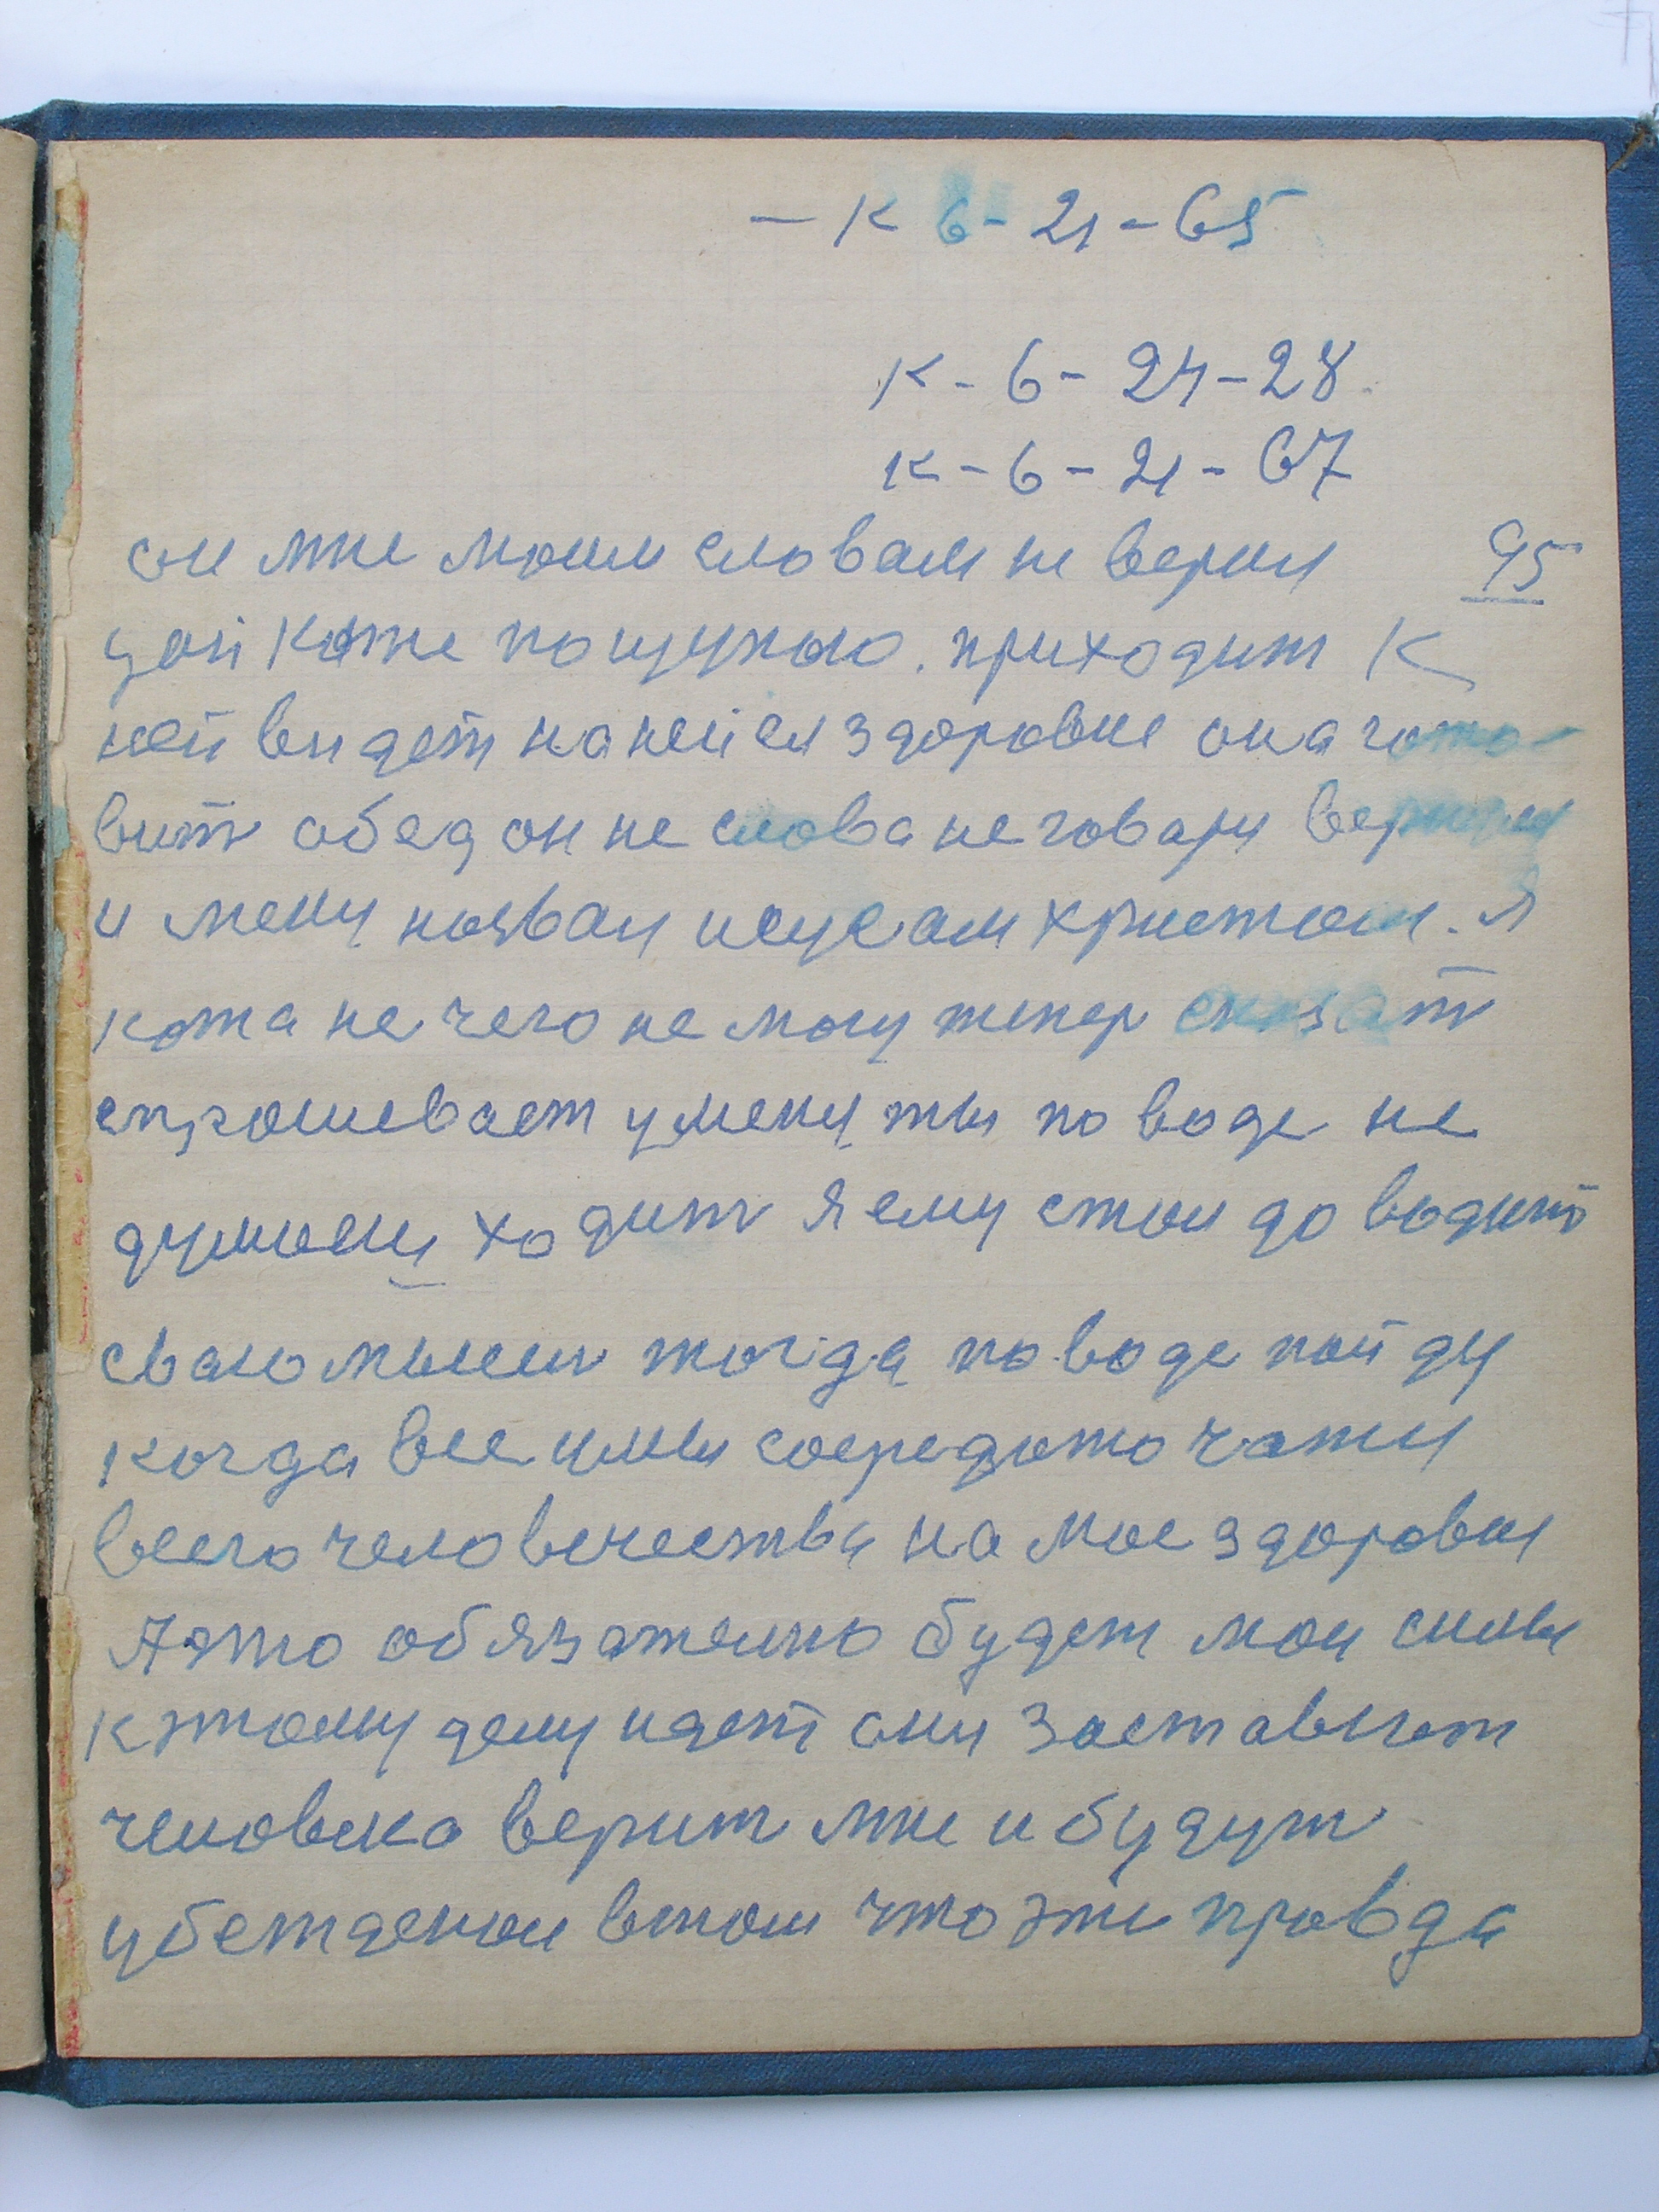 – К 6 - 21 - 65
К - 6 - 24 - 28
К - 6 - 21 - 67
он мне моим словам не верил 95
дай коже пощупаю. приходит к
ней видет на ней ея здоровие она гото-
вит обед он не слова не говаря верит
и меня назвал исусам христом. я
кота не чего не могу тепер сказат
спрошевает у меня ты по воде не
думаеш ходит я ему стал доводит
сваю мысли тогда по воде пойду
когда все умы сосредоточаты
всего человечества на мое здоровия
А это обязательно будет мои силы
к этому делу идет они заставляют
человека верит мне и будут
убежденои втом что эта правда